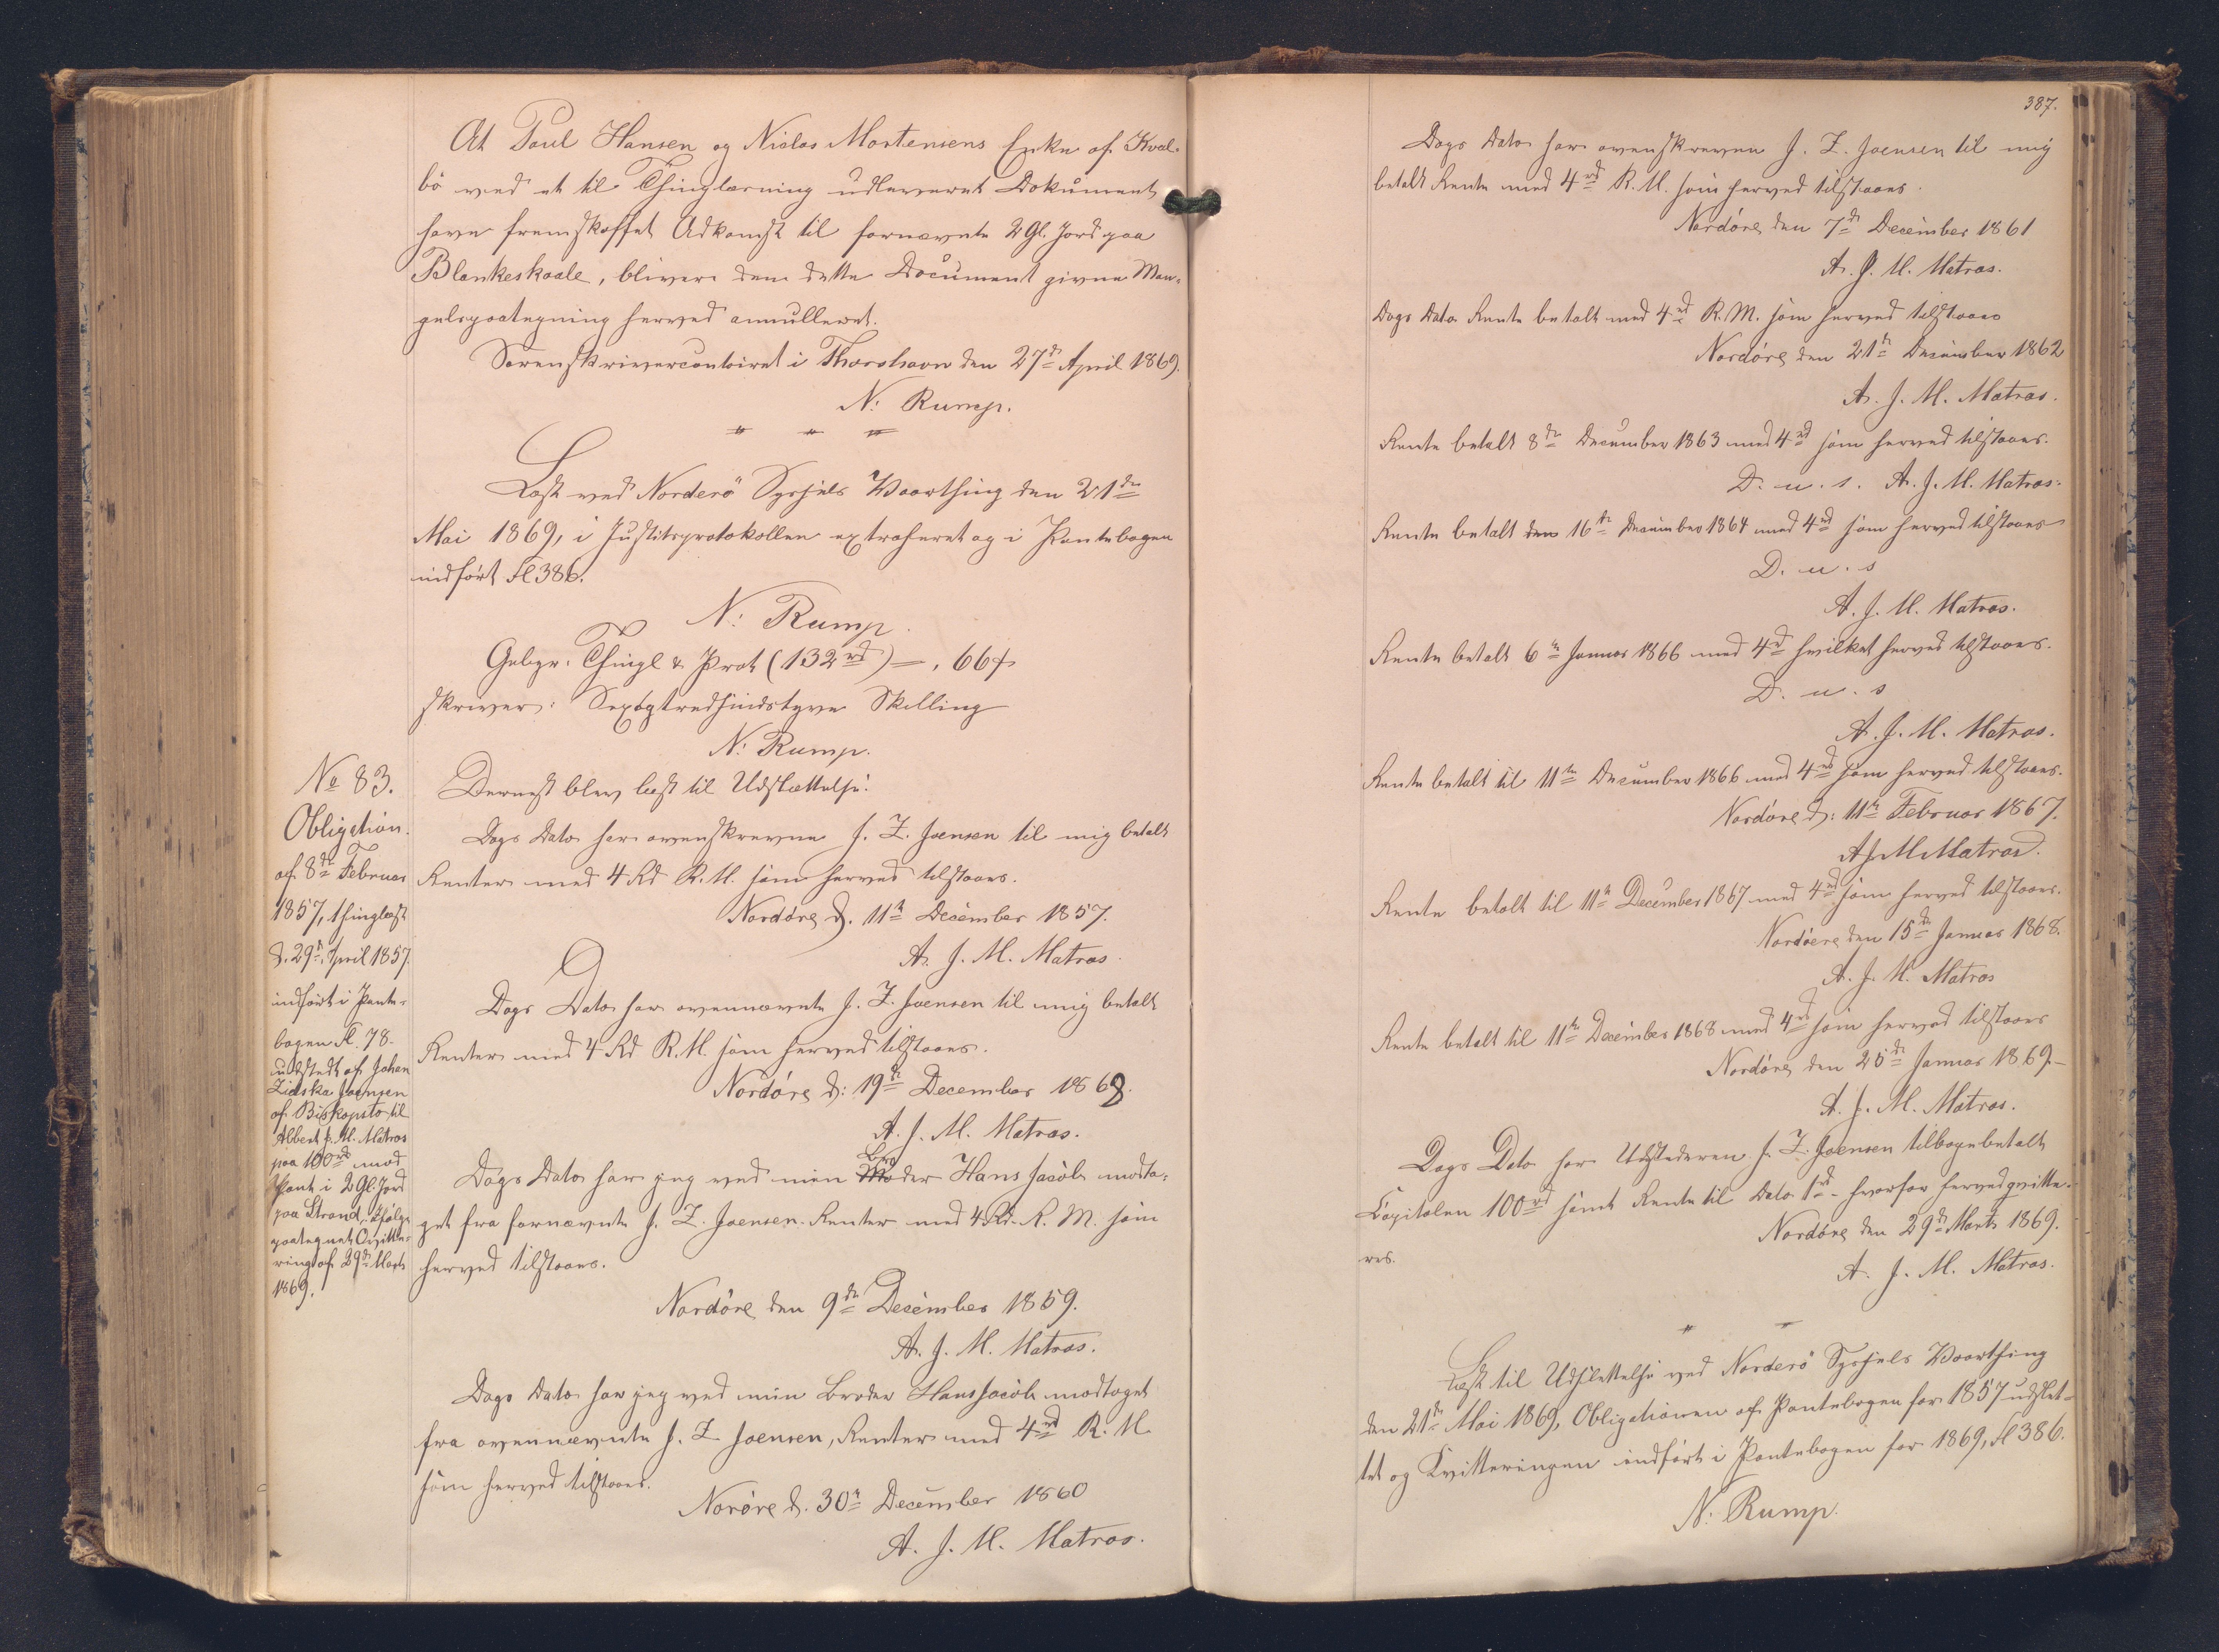 At Poul Hansen og Niclas Mortensens Enke af Kval-
bø ved et til Thinglæsning udleveret Dokument
have fremskaffet Adkomst til fornævnte 2 Gl. Jord paa
Blankeskaale, bliver den dette Document givne Man-
gelspaategning herved annulleret.
Sorenskrivercontoiret i Thorshavn den 27de April 1869.
N: Rump.
Læst ved Norderø Syssels Vaarthing den 21de
Mai 1869, i Justitsprotokollen extraheret og i Pantebogen
indført Fl 386.
N: Rump.
Gebyr. Thingl & Prot (132 rd) =, 66 ß
skriver: Sexogtredsindstyve Skilling
N: Rump.
No 83.
Obligation
af 8de Februar
1857, thinglæst
d. 29de April 1857
indført i Pante-
bogen Fl. 78.
udstedt af Johan
Zidska Joensen
af Biskopstø til
Albert J. M. Matras
paa 100 rd mod
Pant i 2 Gl. Jord
paa Strand, ifølge
paategnet Qvitte-
ring af 29de Marts
1869.
Dernæst blev læst til Udslættelse:
Dags Dato har ovenskrevne J. Z. Joensen til mig betalt
Renter med 4 Rd R. M. som herved tilstaaes.
Nordøre d. 11te December 1857.
A. J. M. Matras.
Dags Dato har ovennævnte J. Z. Joensen til mig betalt
Renter med 4 Rd R. M. som herved tilstaaes.
Nordøre d: 19de December 1868.
A. J. M. Matras.
Dags Dato har jeg ved min Broder Hans Jacob modta-
get fra fornævnte J. Z. Joensen Renter med 4 Rd. R. M. som
herved tilstaaes.
Nordøre den 9de December 1859.
A. J. M. Matras.
Dags Dato har jeg ved min Broder Hans Jacob modtaget
fra ovennævnte J. Z Joensen, Renter med 4 rd R. M
som herved tilstaaes.
Norøre d. 30te December 1860
A. J. M. Matras.
387.
Dags Dato har ovenskrevne J. Z. Joensen til mig
betalt Rente med 4 rd R. M. som herved tilstaaes.
Nordøre den 7de December 1861
A. J. M. Matras.
Dags Dato Rente betalt med 4 rd R. M. som herved tilstaaes
Nordøre den 21te December 1862
A. J. M. Matras.
Rente betalt 8de December 1863 med 4 rd som herved tilstaaes.
D. u. s. A. J. M. Matras.
Rente betalt den 16te December 1864 med 4 rd som herved tilstaaes
D. u. s
A. J. M. Matras.
Rente betalt 6te Januar 1866 med 4 rd hvilket herved tilstaaes.
D. u. s
A. J. M. Matras.
Rente betalt til 11te December 1866 med 4 rd som herved tilstaaes.
Nordøre d: 11te Februar 1867.
A J M Matras.
Rente betalt til 11te December 1867 med 4 rd som herved tilstaaes.
Nordøere den 15de Januar 1868.
A. J. M. Matras
Rente betalt til 11te December 1868 med 4 rd som herved tilstaaes
Nordøre den 25de Januar 1869.-
A. J. M. Matras.
Dags Dato har Udstederen J. Z. Joensen tilbagebetalt
Capitalen 100 rd samt Rente til Dato 1 rd - hvorfor herved qvitte-
res.
Nordøre den 29de Marts 1869.
A. J. M. Matras.
Læst til Udslettelse ved Norderø Syssels Vaarthing
den 21de Mai 1869, Obligationen af Pantebogen for 1857 udslet-
tet og Kvitteringen indført i Pantebogen for 1869, Fl 386.
N: Rump.